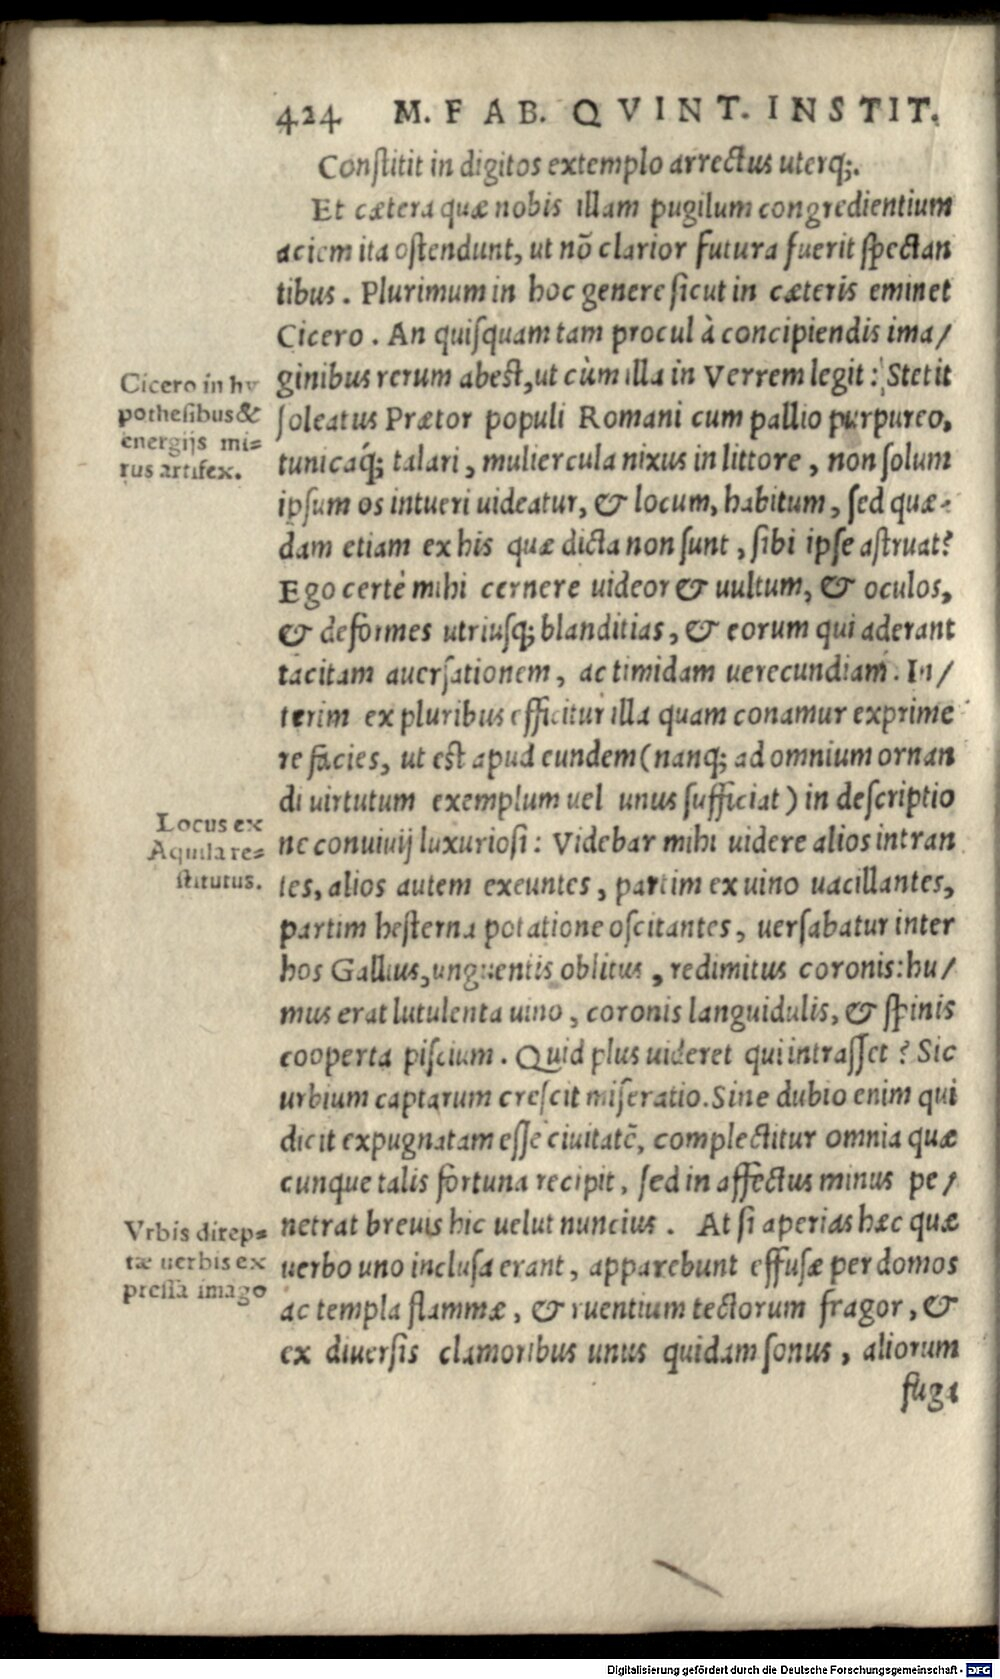 424 M. FAB. QVINT. INSTIT.
Constitit in digitos extemplo arrectus uterq;.
Et cætera quæ nobis illam pugilum congredientium
aciem ita ostendunt, ut nõ clarior futura fuerit spectan
tibus. Plurimum in hoc genere sicut in cæteris eminet
Cicero. An quisquam tam procul à concipiendis ima/
ginibus rerum abest, ut cùm illa in Verrem legit: Stetit
soleatus Prætor populi Romani cum pallio purpureo,
tunicaq́; talari, muliercula nixus in littore, non solum
ipsum os intueri uideatur, & locum, habitum, sed quæ-
dam etiam ex his quæ dicta non sunt, sibi ipse astruat?
Ego certè mihi cernere uideor & uultum, & oculos,
& deformes utriusq; blanditias, & eorum qui aderant
tacitam auersationem, ac timidam uerecundiam. In/
terim ex pluribus efficitur illa quam conamur exprime
re facies, ut est apud eundem (nanq; ad omnium ornan
di uirtutum exemplum uel unus sufficiat) in descriptio
ne conuiuij luxuriosi: Videbar mihi uidere alios intran
tes, alios autem exeuntes, partim ex uino uacillantes,
partim hesterna potatione oscitantes, uersabatur inter
hos Gallius, unguentis oblitus, redimitus coronis: hu/
mus erat lutulenta uino, coronis languidulis, & spinis
cooperta piscium. Quid plus uideret qui intrasset? Sic
urbium captarum crescit miseratio. Sine dubio enim qui
dicit expugnatam esse ciuitatẽ, complectitur omnia quæ
cunque talis fortuna recipit, sed in affectus minus pe/
netrat breuis hic uelut nuncius. At si aperias hæc quæ
uerbo uno inclusa erant, apparebunt effusæ per domos
ac templa flammæ, & ruentium tectorum fragor, &
ex diuersis clamoribus unus quidam sonus, aliorum
fuga
Cicero in hy
pothesibus &
energijs mi-
rus artifex.
Locus ex
Aquila re-
stitutus.
Vrbis direp-
tæ uerbis ex
pressa imago
Digitalisierung gefördert durch die Deutsche Forschungsgemeinschaft - DFG